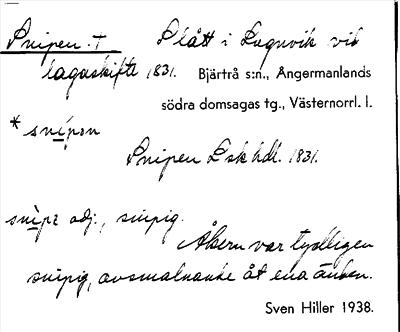 Snipen. † Slått i Lugnvik vid
lagaskifte 1831. Bjärtrå s:n., Ångermanlands
södra domsagas tg., Västernorrl. l.
* snípən
Snipen Lsk hdl. 1831.
snìpɛ adj., snipig.
Åkern var tydligen
snipig, avsmalnande åt ena ändan.
Sven Hiller 1938.